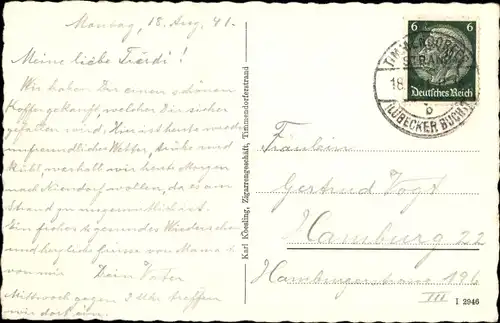 Montag, 18. Aug. 41.
Meine liebe Trudi!
Wir haben Dir einen schönen
Koffer gekauft, welcher Dir sicher
gefallen wird. Hier ist heute wieder
unfreundliches Wetter, trübe und
kühl, weshalb wir heute Morgen
nach Niendorf wollen, da es am
Strand zu ungemütlich ist.
Ein frohes & gesundes Wiedersehen
und herzliche Grüsse von Mama &
von mir Dein Vater
Mittwoch gegen 3 Uhr treffen
wir dort ein.
Karl Koesling, Zigarrengeschäft, Timmendorferstrand
6 6
Deutsches Reich
TIMMENDORFER
STRAND
18.
b
(LÜBECKER BUCHT)
Fräulein
Gertrud Vogt
Hamburg 22
Hamburgerstrasse 196
III
I 2946